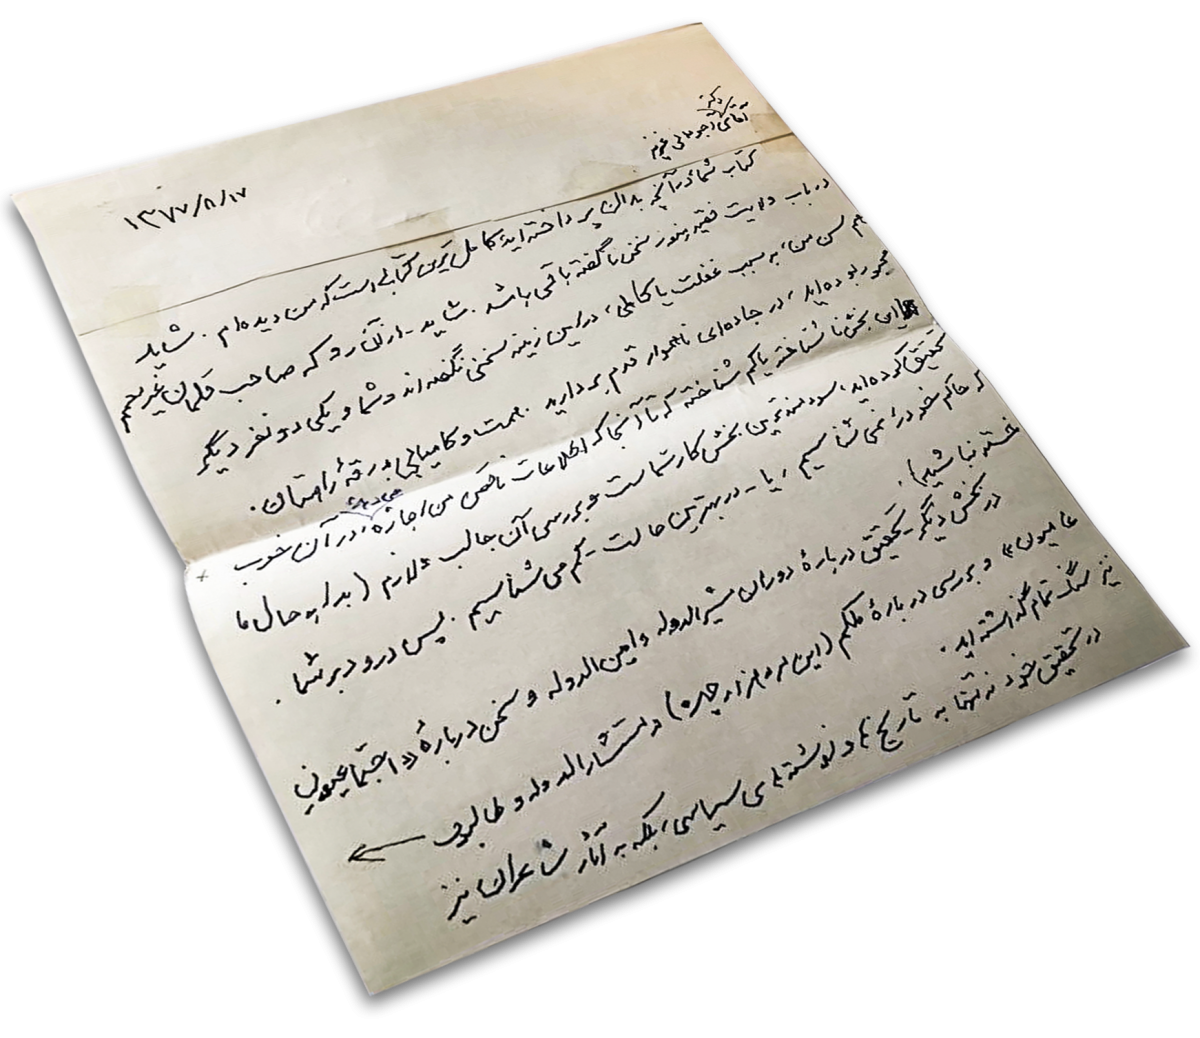 ۱۳۷۷/۸/۱۷
دکتر
آقای آجودانی عزیز
کتاب شما در آنچه بدان پرداخته‌اید کامل‌ترین کتابی است که من دیده‌ام. شاید
در باب ولایت فقیه هنوز سخن ناگفته باقی باشد. شاید - از آن رو که صاحب قلمان غیر هم
هم سن من، به سبب غفلت یا کاهلی، در این زمینه سخنی نگفته‌اند و شما و یکی دو نفر دیگر
مجبور بوده‌اید، در جاده‌ای ناهموار قدم بردارید. همت و کامیابی بدرقهٔ راهتان.
این بخش ناشناخته یا کم شناخته که تا آنجا که اطلاعات ناقص من اجازه می‌دهد، در آن خوب
تحقیق کرده‌اید، سودمندترین بخش کار شماست و بررسی آن جالب و لازم (بدا به حال ما
که حاکم خود را نمی‌شناسیم، یا - در بهترین حالت - کم می‌شناسیم. پس درود بر شما.
خسته نباشید).
در بخش دیگر - تحقیق دربارهٔ دوران مشیرالدوله و امین‌الدوله و سخن دربارهٔ «اجتماعیون
عامیون» و بررسی دربارهٔ ملکم (این مرد هزار چهره) و مستشارالدوله و طالبوف ←
نیز سنگ تمام گذاشته‌اید.
در تحقیق خود نه تنها به تاریخ‌ها و نوشته‌های سیاسی، بلکه به آثار شاعران نیز